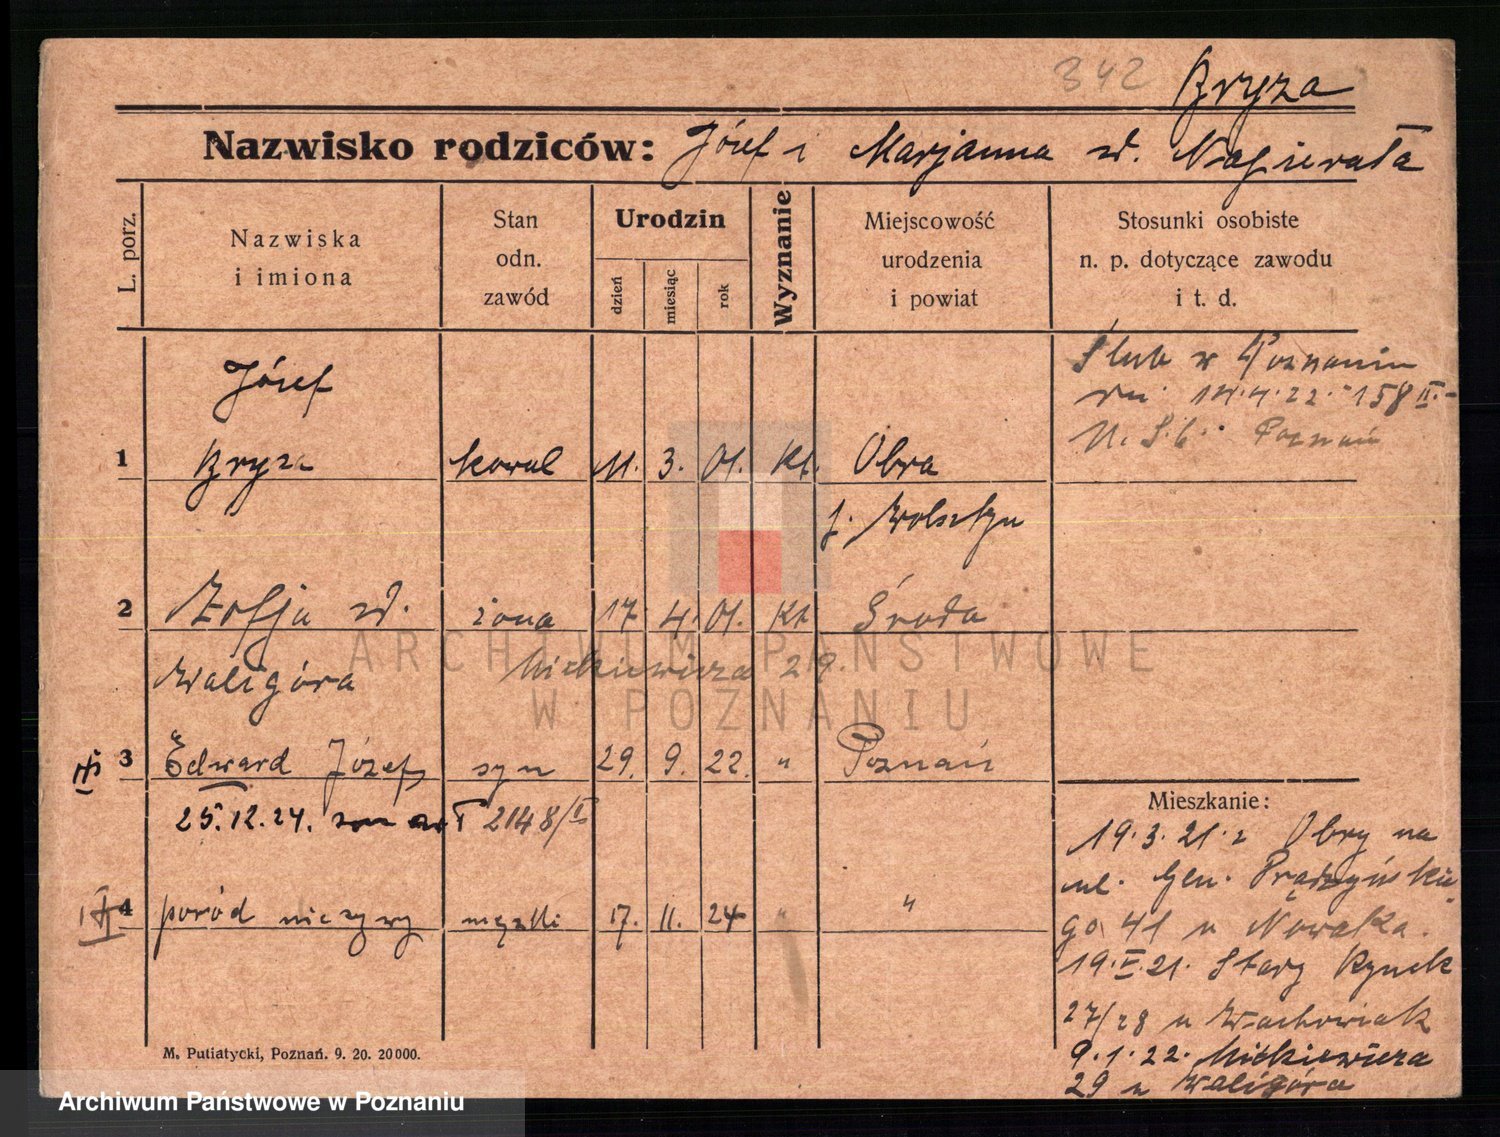 342 Bryza
Nazwisko rodziców: Józef i Marjanna zd. Nagierała
L. porz.
Nazwiska
i imiona
Stan
odn.
zawód
Urodzin
dzień
miesiąc
rok
Wyznanie
Miejscowość
urodzenia
i powiat
Stosunki osobiste
n. p. dotyczące zawodu
i t. d.
Ślub w Poznaniu
dn. 14.4.22. 158 II.-
U. S. C. Poznań
Józef
1 Bryza kowal 11. 3. 01. Kt. Obra
p. Wolsztyn
2 Zofja zd. żona 17. 4. 01. Kt. Środa
Waligóra Mickiewicza 29.
3 Edward Józef syn 29. 9. 22. " Poznań
25.12.24. 2148/I
4 poród nieżywy męzki 17. 11. 24 " "
Mieszkanie:
19.3.21. z Obry na
ul. Gen. Prądzyńskie
go 41 u Nowaka.
19.V.21. Stary Rynek
27/28 u Wachowiak
9.1.22. Mickiewicza
29 u Waligóra
M. Putiatycki, Poznań. 9. 20. 20000.
ARCHIWUM PAŃSTWOWE
W POZNANIU
Archiwum Państwowe w Poznaniu